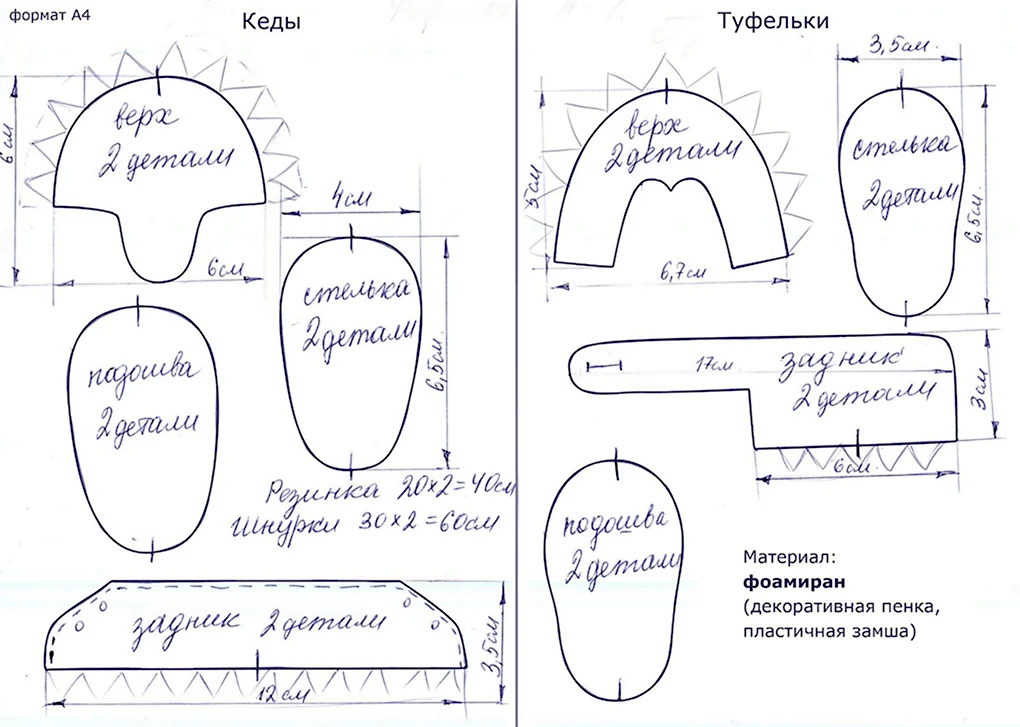 формат А4
Кеды
верх
2 детали
6см
6см
4см
стелька
2 детали
6,5см.
подошва
2 детали
Резинка 20х2=40см
Шнурки 30х2=60см
задник 2 детали
3,5см
12см
Туфельки
верх
2 детали
5см
6,7см
3,5см.
стелька
2 детали
6,5см.
17см
задник
2 детали
3см
6см.
подошва
2 детали
Материал:
фоамиран
(декоративная пенка,
пластичная замша)